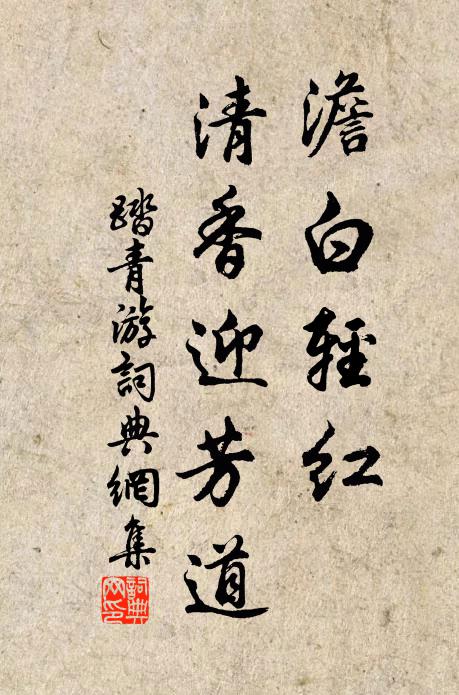 澹白輕紅
清香迎芳道
踏青游詞典網集
詞典網印